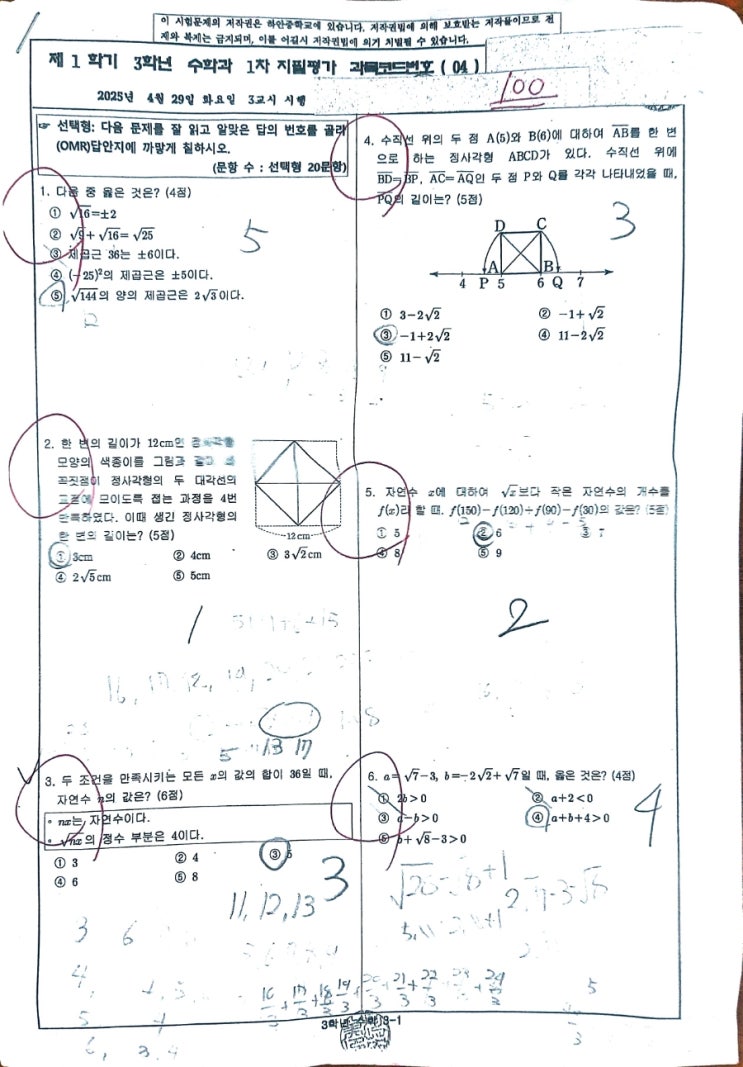 이 시험문제의 저작권은 하안중학교에 있습니다. 저작권법에 의해 보호받는 저작물이므로 전
재와 복제는 금지되며, 이를 어길시 저작권법에 의거 처벌될 수 있습니다.
제 1 학기 3학년 수학과 1차 지필평가 과목코드번호 ( 04 )
100
2025년 4월 29일 화요일 3교시 시행
☞ 선택형: 다음 문제를 잘 읽고 알맞은 답의 번호를 골라
(OMR)답안지에 까맣게 칠하시오.
(문항 수 : 선택형 20문항)
1. 다음 중 옳은 것은? (4점)
① √16=±2
② √9+√16=√25
③ 제곱근 36는 ±6이다.
④ (-25)²의 제곱근은 ±5이다.
⑤ √144의 양의 제곱근은 2√3이다.
5
2. 한 변의 길이가 12cm인
모양의 색종이를 그림과
꼭짓점이 정사각형의 두 대각선의
교점에 모이도록 접는 과정을 4번
반복하였다. 이때 생긴 정사각형의
한 변의 길이는? (5점)
12cm
① 3cm ② 4cm ③ 3√2cm
④ 2√5cm ⑤ 5cm
1
16, 17
5 13 17
3. 두 조건을 만족시키는 모든 x의 값의 합이 36일 때,
자연수 n의 값은? (6점)
◦ nx는 자연수이다.
◦ √nx의 정수 부분은 4이다.
① 3 ② 4 ③ 5
④ 6 ⑤ 8
3
11, 12, 13
3 6
4,
5
6, 3, 4
16/3+17/3+18/3 19/3 +21/3+22/3 24/3
4. 수직선 위의 두 점 A(5)와 B(6)에 대하여 AB를 한 변
으로 하는 정사각형 ABCD가 있다. 수직선 위에
BD=BP, AC=AQ인 두 점 P와 Q를 각각 나타내었을 때,
PQ의 길이는? (5점)
3
D C
A B
4 P 5 6 Q 7
① 3-2√2 ② -1+√2
③ -1+2√2 ④ 11-2√2
⑤ 11-√2
5. 자연수 x에 대하여 √x보다 작은 자연수의 개수를
f(x)라 할 때, f(150)-f(120)+f(90)-f(30)의 값은? (5점)
① 5 ② 6 ③ 7
④ 8 ⑤ 9
2
6. a=√7-3, b=-2√2+√7일 때, 옳은 것은? (4점)
① 2b>0 ② a+2<0
③ a-b>0 ④ a+b+4>0
⑤ b+√8-3>0
4
5
3학년 수학 3-1